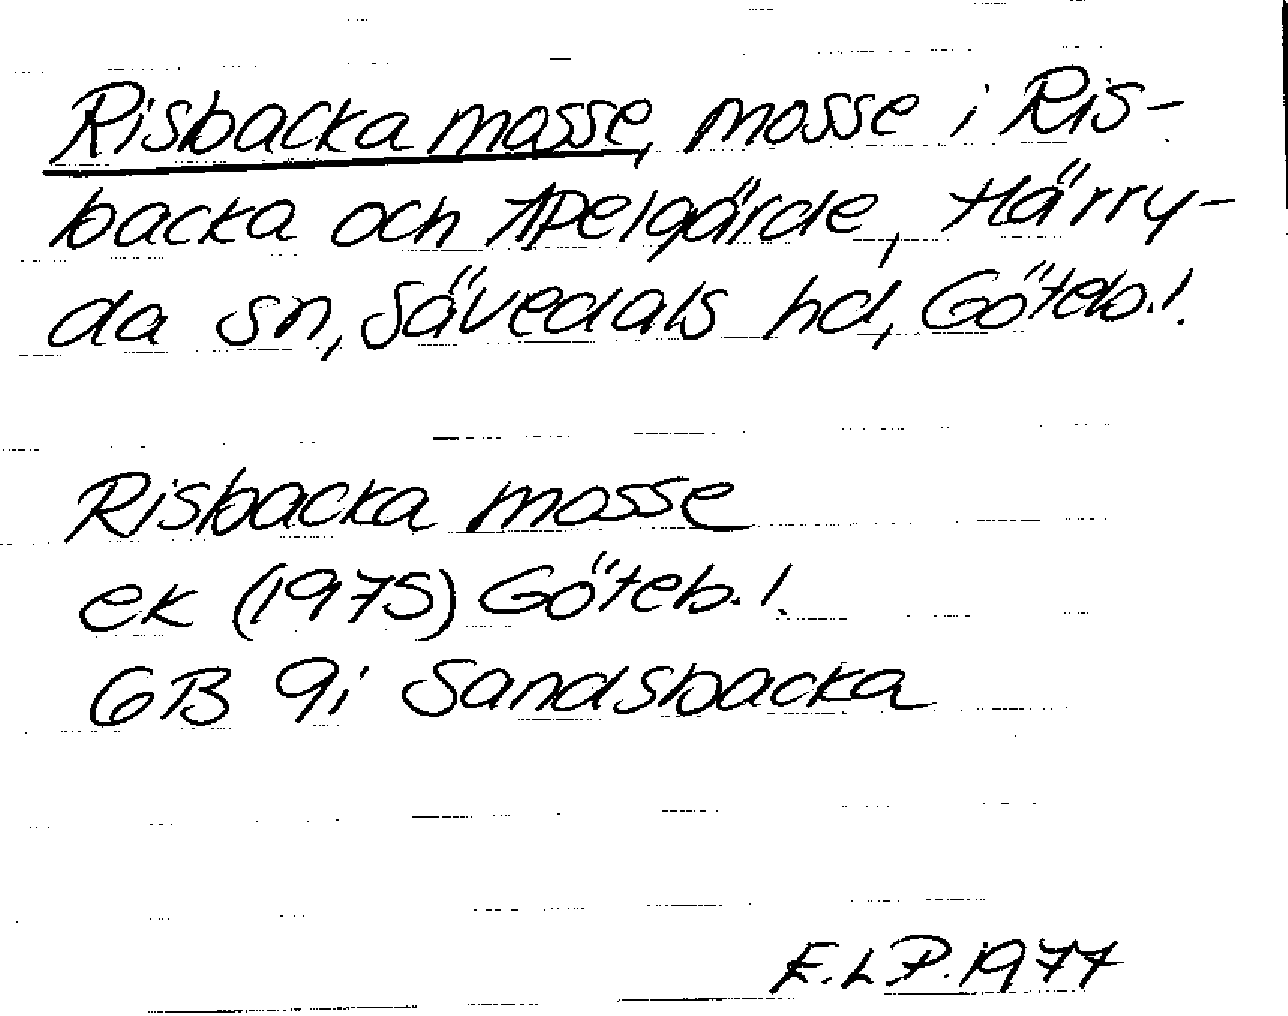 Risbacka mosse, mosse i Ris-
backa och Apelgärde, Härry-
da sn, Sävedals hd, Göteb. l.
Risbacka mosse
ek (1975) Göteb. l.
6B 9i Sandsbacka
E.L.P. 1977